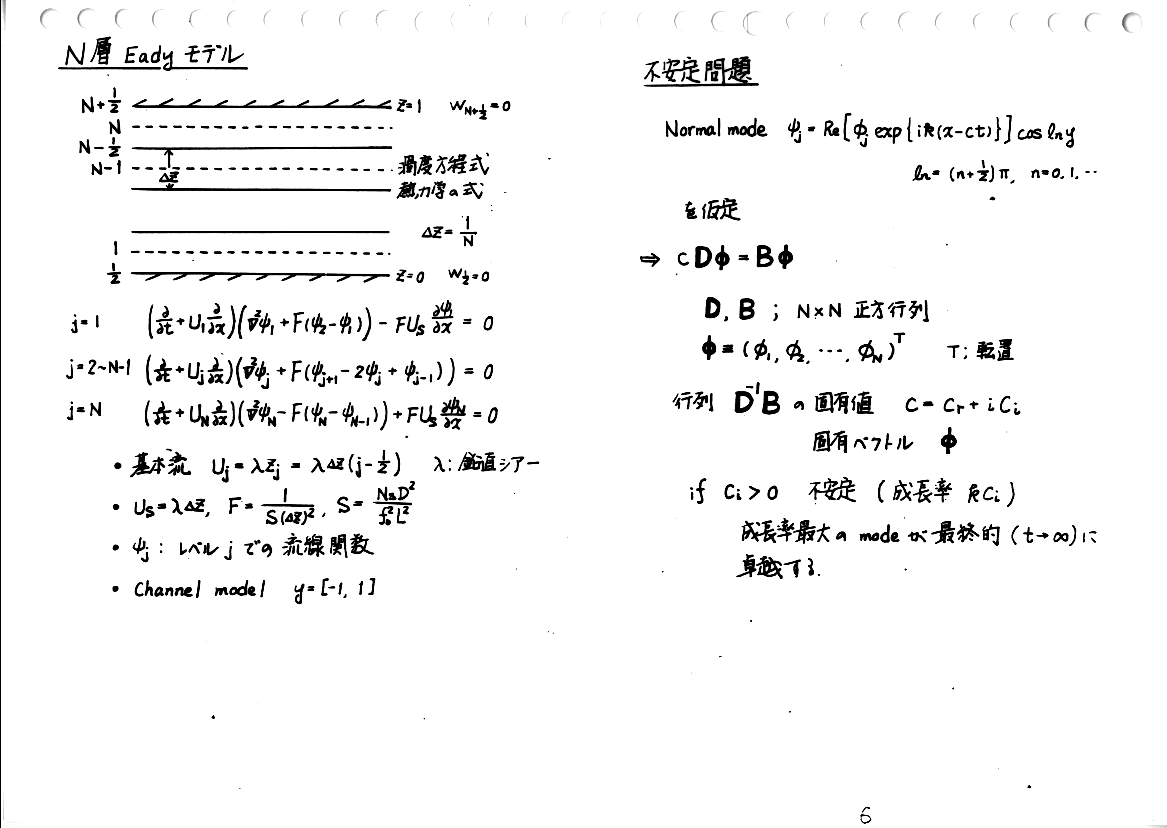 N層 Eady モデル
N+1/2 Z=1 W_{N+1/2}=0
N
N-1/2
N-1 ΔZ 渦度方程式
熱力学の式
ΔZ = 1/N
1
1/2 Z=0 W_{1/2}=0
j=1 (∂/∂t + U₁ ∂/∂x)(∇²ψ₁ + F(ψ₂-ψ₁)) - FU_S ∂ψ₁/∂x = 0
j=2~N-1 (∂/∂t + U_j ∂/∂x)(∇²ψ_j + F(ψ_{j+1} - 2ψ_j + ψ_{j-1})) = 0
j=N (∂/∂t + U_N ∂/∂x)(∇²ψ_N - F(ψ_N - ψ_{N-1})) + FU_S ∂ψ_N/∂x = 0
• 基本流 U_j = λZ_j = λΔZ(j-1/2) λ: 鉛直シアー
• U_S = λΔZ, F = 1/S(ΔZ)², S = N_BD²/f₀²L²
• ψ_j : レベル j での 流線関数
• Channel model y=[-1, 1]
不安定問題
Normal mode ψ_j = Re[φ_j exp{ik(x-ct)}] cos l_n y
l_n = (n+1/2)π, n=0,1,...
を仮定
⇒ cDφ = Bφ
D, B ; N×N 正方行列
φ = (φ₁, φ₂, ..., φ_N)^T T; 転置
行列 D⁻¹B の 固有値 C = C_r + i C_i
固有ベクトル φ
if C_i > 0 不安定 (成長率 kC_i)
成長率最大の mode が 最終的 (t→∞) に
卓越する.
6